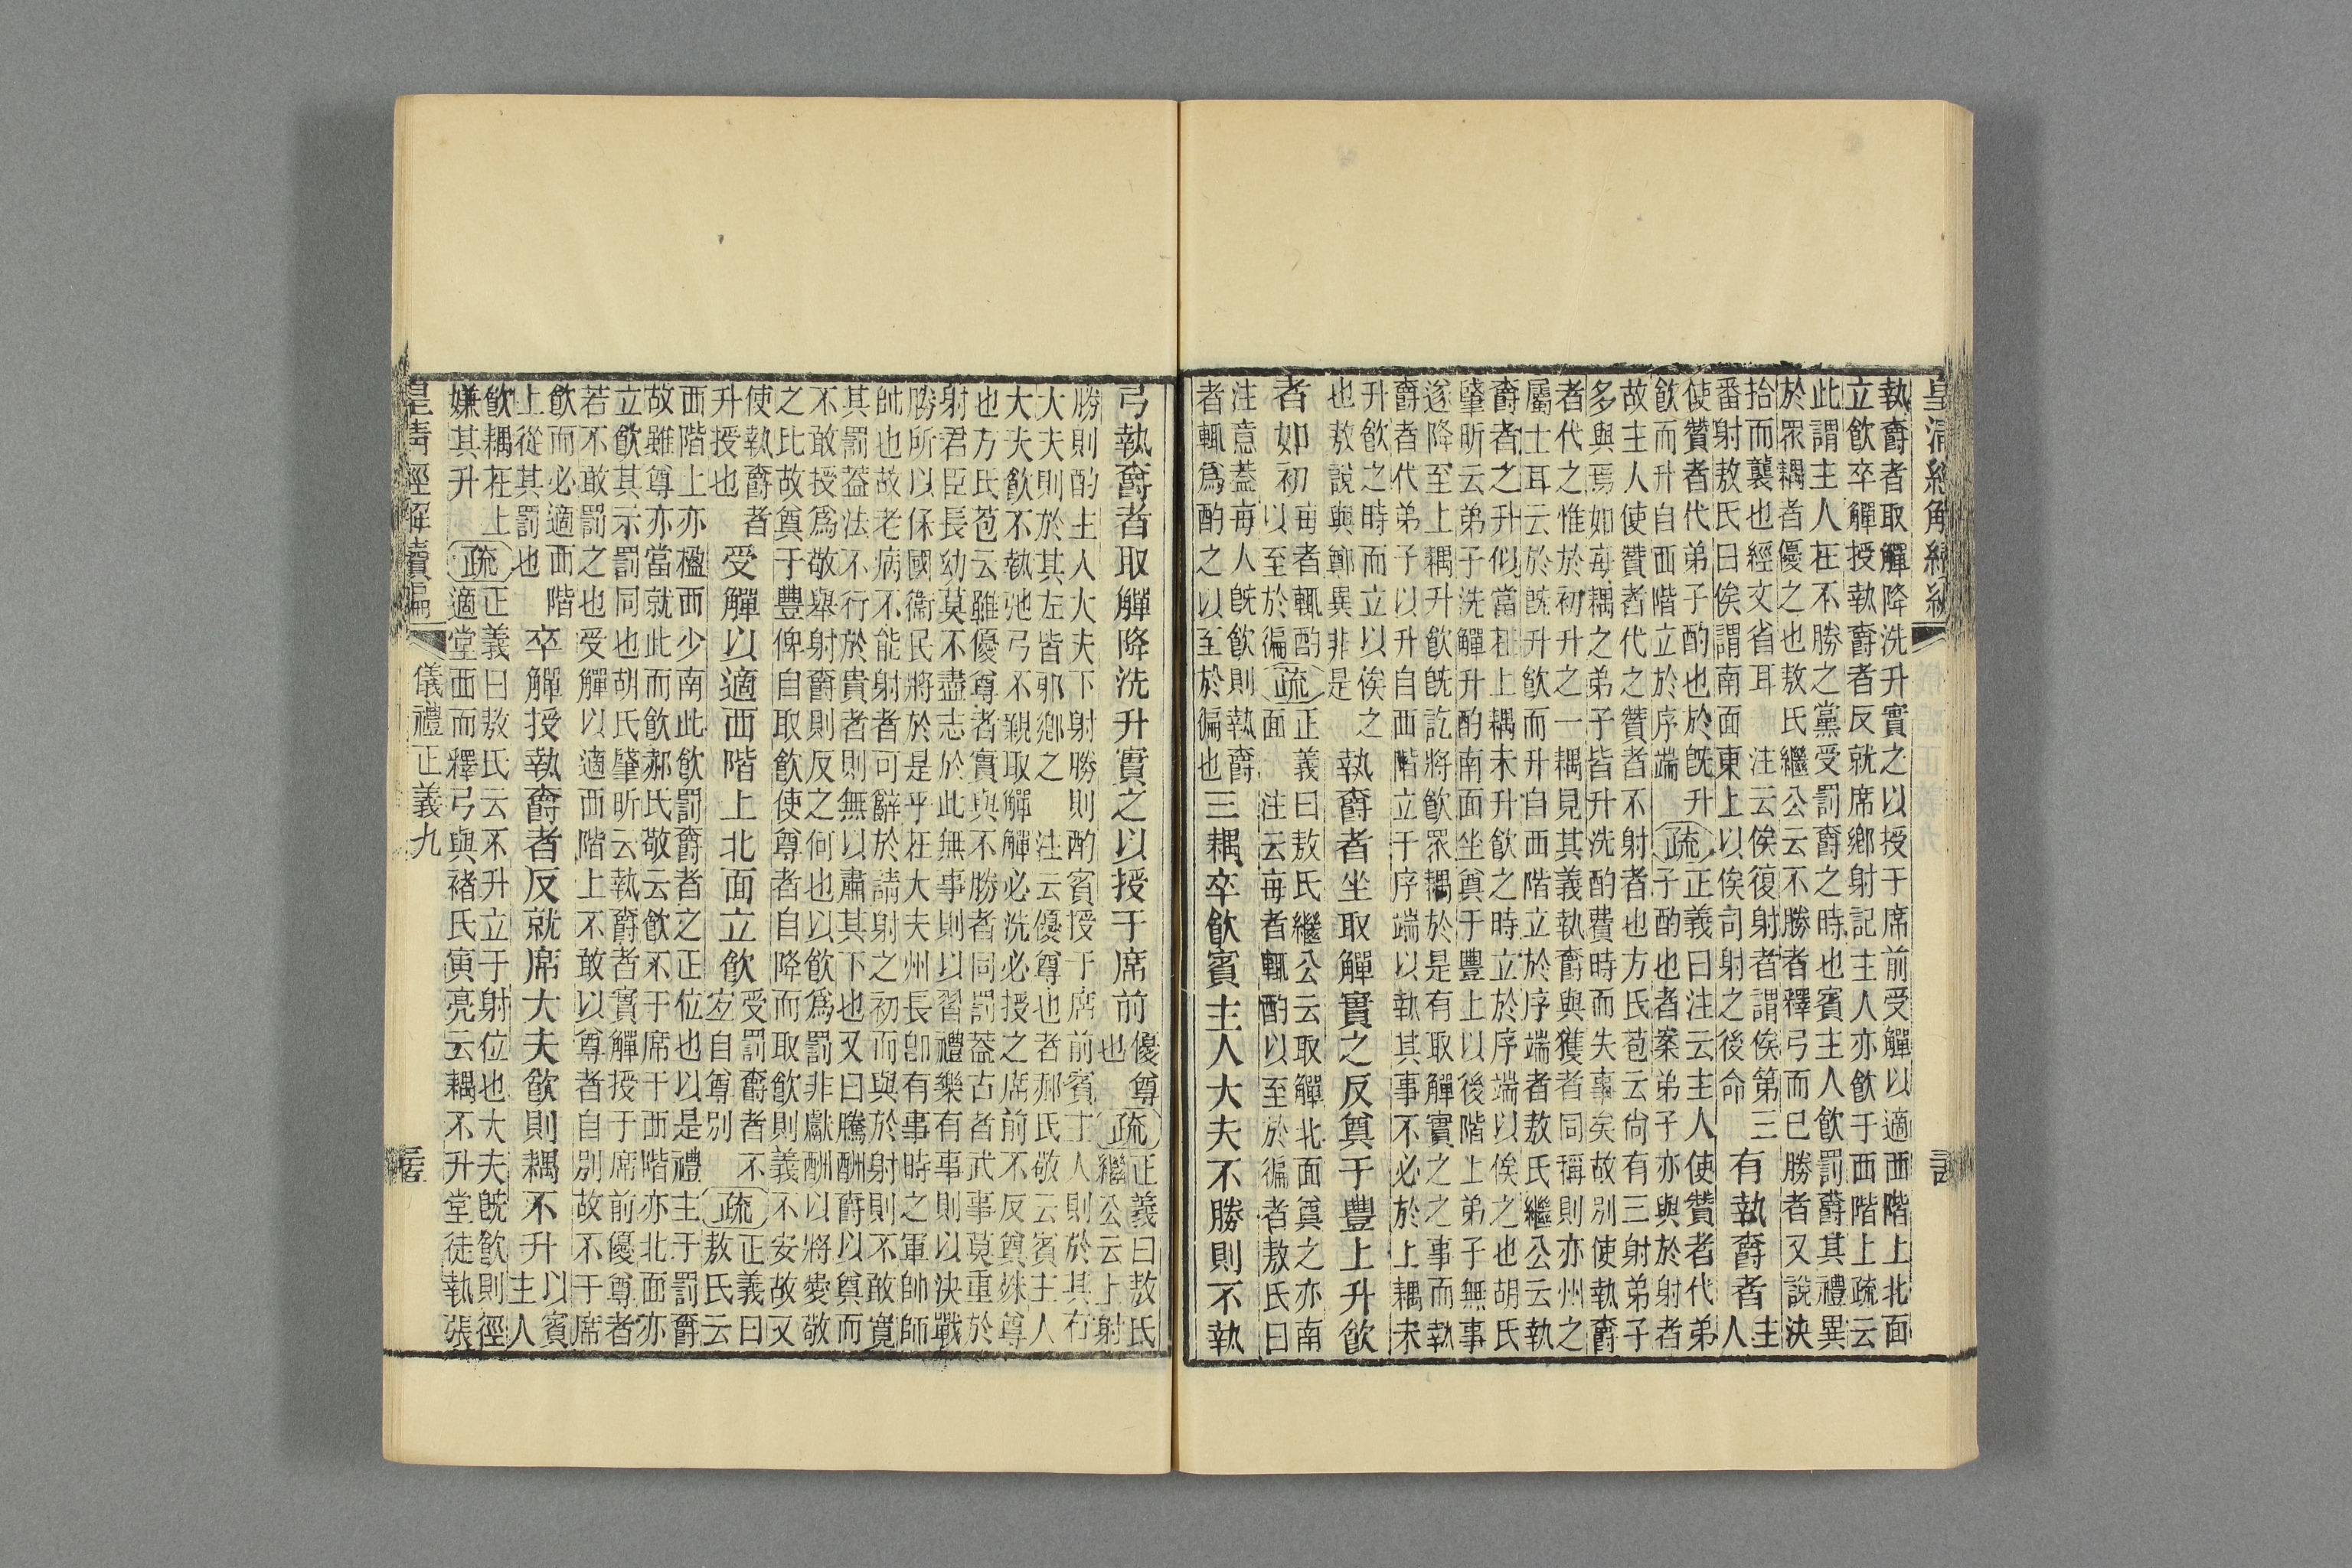 皇清經解續編
執爵者取觶降洗升實之以授于席前受觶以適西階上北面
立飲卒觶授執爵者反就席鄉射記主人亦飲于西階上疏云
此謂主人在不勝之黨受罰爵之時也賓主人飲罰爵其禮異
於眾耦者優之也敖氏繼公云不勝者釋弓而已勝者又說決
拾而襲也經文省耳 注云俟復射者謂俟第三
番射敖氏曰俟謂南面東上以俟司射之後命
有執爵者
主
人
使贊者代弟子酌也於既升
飲而升自西階立於序端
疏
正義曰注云主人使贊者代弟
子酌也者案弟子亦與於射者
故主人使贊者代之贊者不射者也方氏苞云尙有三射弟子
多與焉如每耦之弟子皆升洗酌費時而失事矣故別使執爵
者代之惟於初升之一耦見其義執爵與獲者同稱則亦州之
屬士耳云於既升飲而升自西階立於序端者敖氏繼公云執
爵者之升似當在上耦未升飲之時立於序端以俟之也胡氏
肇昕云弟子洗觶升酌南面坐奠于豐上以後階上弟子無事
遂降至上耦升飲既訖將飲眾耦於是有取觶實之之事而執
爵者代弟子以升自西階立于序端以執其事不必於上耦未
升飲之時而立以俟之
也敖說與鄭異非是
執爵者坐取觶實之反奠于豐上升飲
者如初
每者輒酌
以至於徧
疏
正義曰敖氏繼公云取觶北面奠之亦南
面 注云每者輒酌以至於徧者敖氏曰
注意蓋每人既飲則執爵
者輒爲酌之以至於徧也
三耦卒飲賓主人大夫不勝則不執
弓執爵者取觶降洗升實之以授于席前
優尊
也
疏
正義曰敖氏
繼公云上射
勝則酌主人大夫下射勝則酌賓授于席前賓主人則於其右
大夫則於其左皆鄉之 注云優尊也者郝氏敬云賓主人
大夫飲不執弛弓不親取觶觶必洗必授之席前不反奠殊尊
也方氏苞云雖優尊者實與不勝者同罰蓋古者武事莫重於
射君臣長幼莫不盡志於此無事則以習禮樂有事則以決戰
勝所以保國衞民將於是乎在大夫州長卽有事時之軍帥師
帥也故老病不能射者可辭於請射之初而與於射則不敢寬
其罰蓋法不行於貴者則無以肅其下也又曰騰酬爵以奠而
不敢授爲敬舉射爵則反之何也以飲爲罰非獻酬以將愛敬
之比故奠于豐俾自取飲使尊者自降而取飲則義不安故又
使執爵者
升授也
受觶以適西階上北面立飲
受罰爵者不
宐自尊別
疏
正義曰
敖氏云
西階上亦楹西少南此飲罰爵者之正位也以是禮主于罰爵
故雖尊亦當就此而飲郝氏敬云飲不于席于西階亦北面亦
立飲其示罰同也胡氏肇昕云執爵者實觶授于席前優尊者
若不敢罰之也受觶以適西階上不敢以尊者自別故不于席
飲而必適西階
上從其罰也
卒觶授執爵者反就席大夫飲則耦不升
以賓
主人
飲耦在上
嫌其升
疏
正義曰敖氏云不升立于射位也大夫既飲則徑
適堂西而釋弓與褚氏寅亮云耦不升堂徒執張
皇清經解續編
儀禮正義九